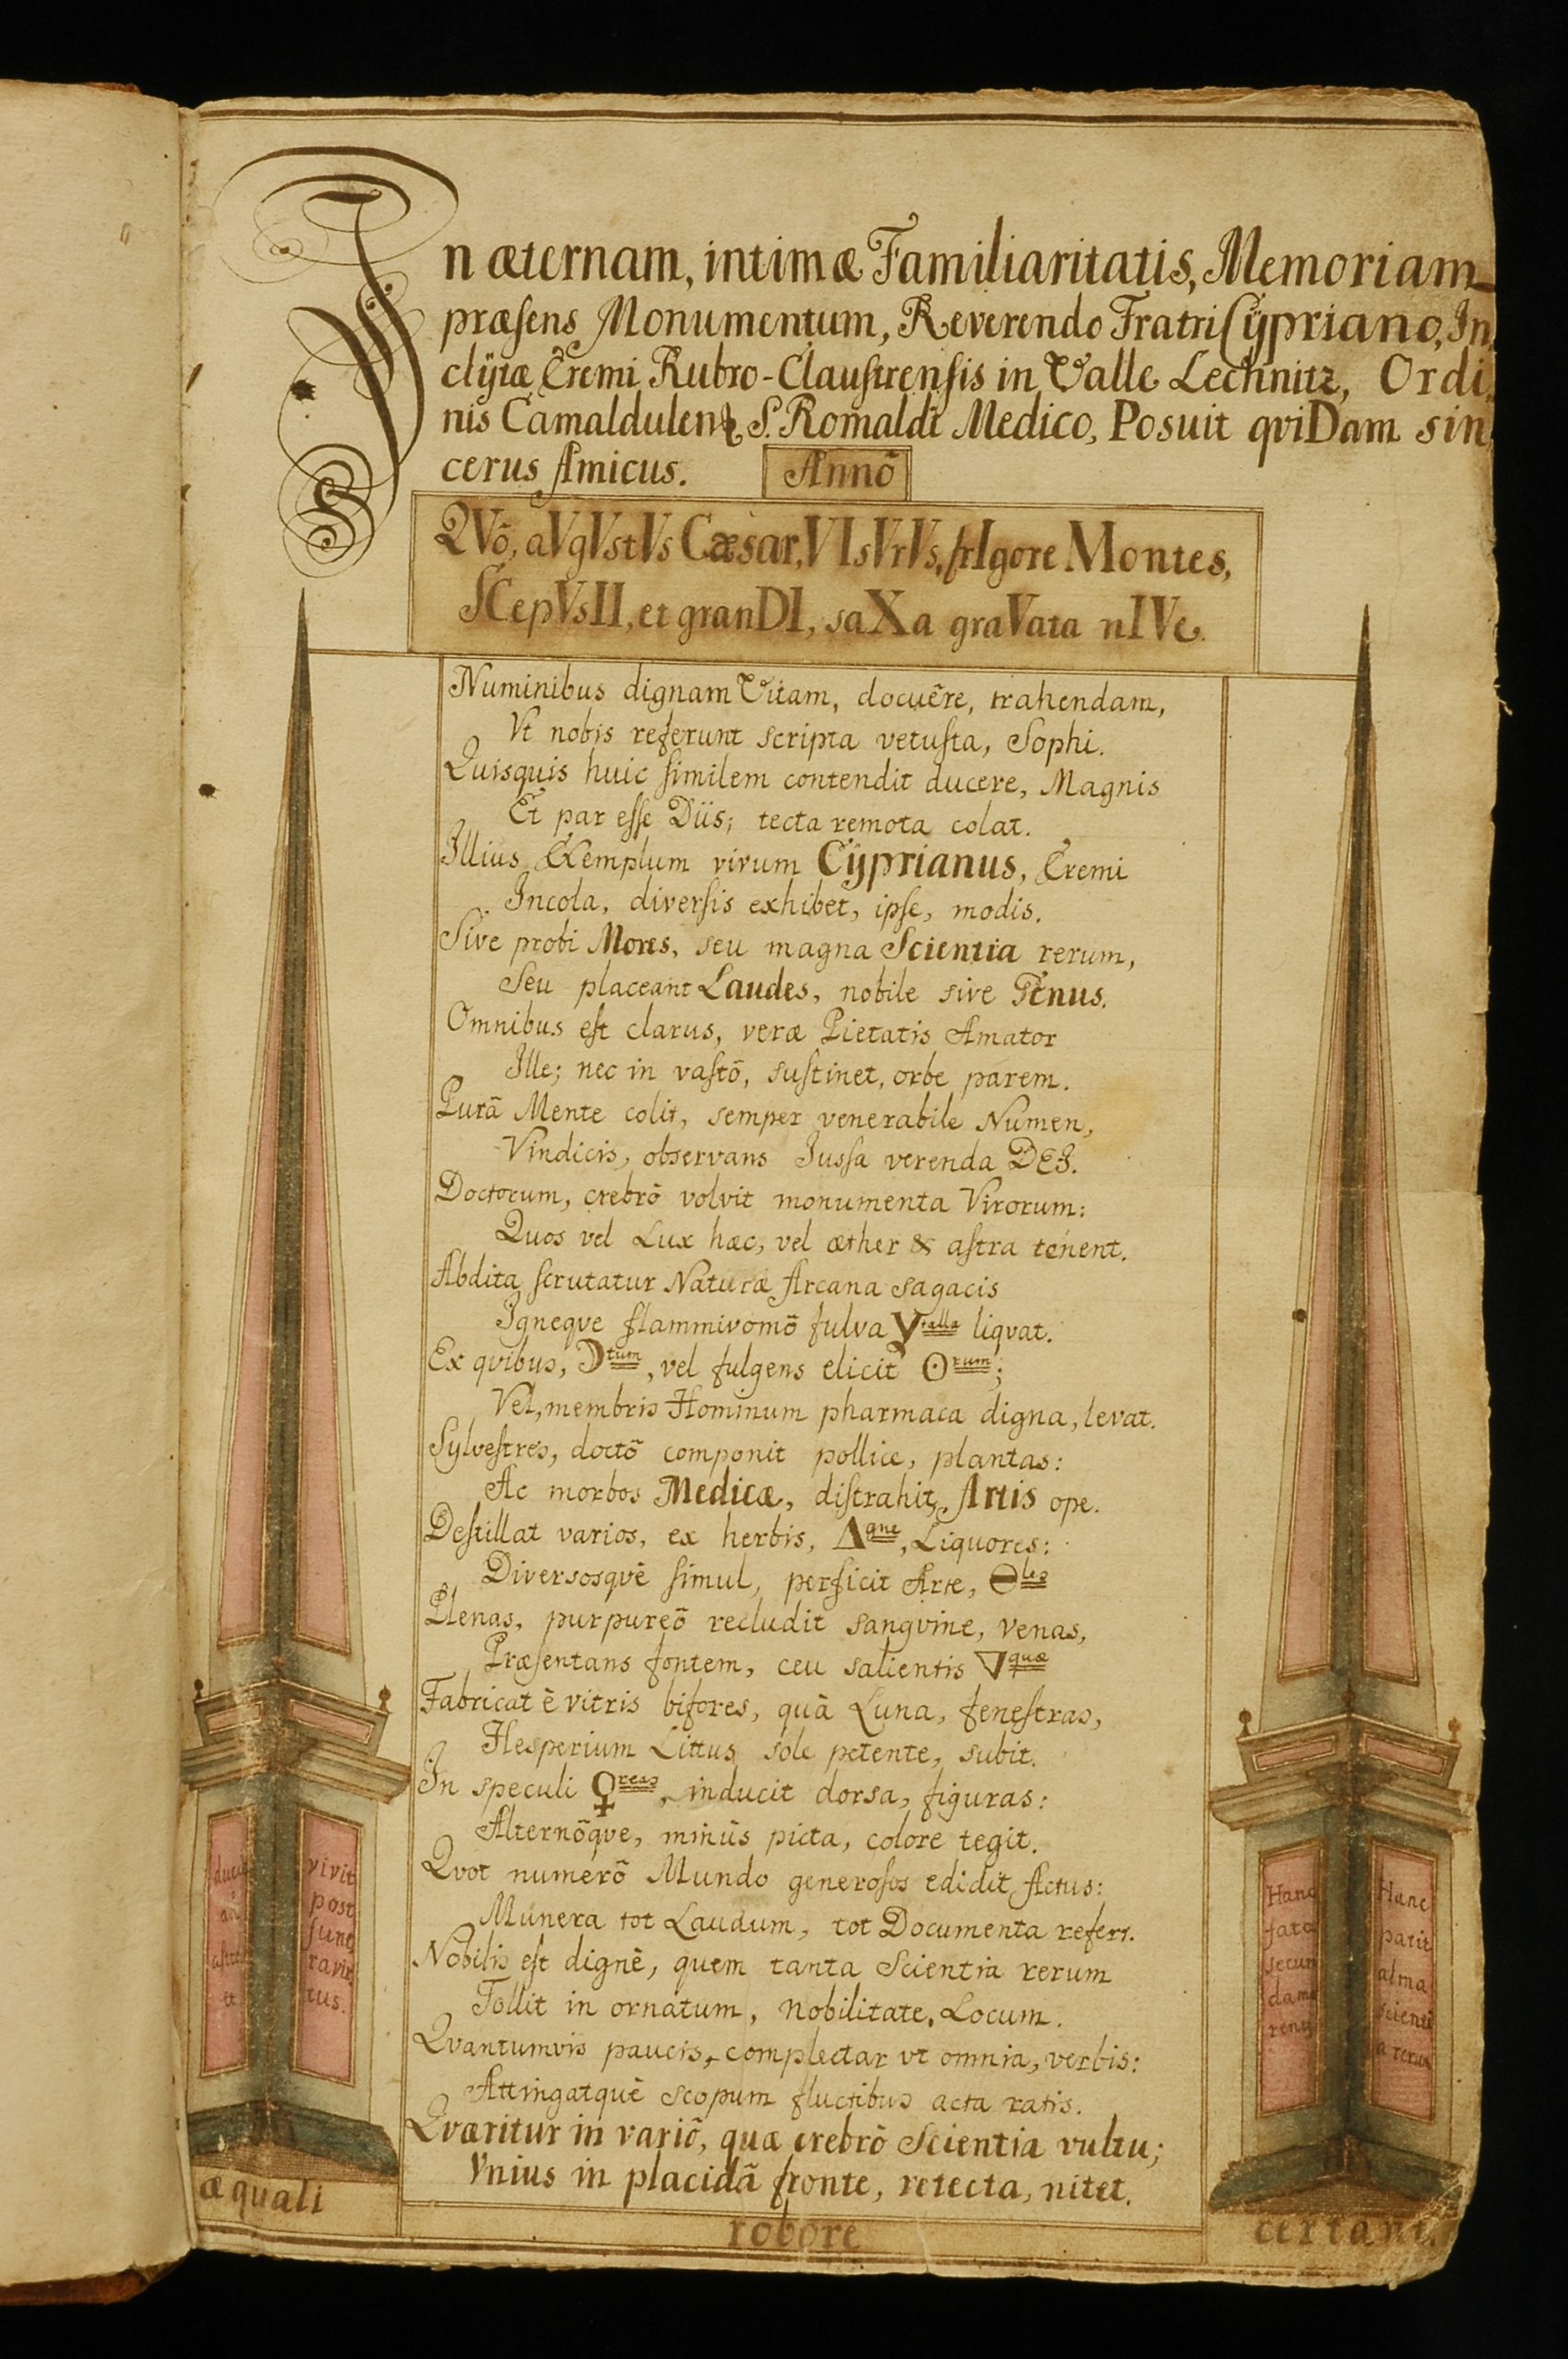 In æternam, intimæ Familiaritatis, Memoriam
præsens Monumentum, Reverendo Fratri Cÿpriano, In
clÿtæ Eremi Rubro-Claustrensis in Valle Lechnitz, Ordi
nis Camaldulens S. Romaldi Medico, Posuit qviDam sin
cerus Amicus. Annō
QVō, aVgVstVs Cæsar, VIsVrVs, frIgore Montes,
SCepVsII, et granDI, saXa graVata nIVe.
Numinibus dignam Vitam, docuêre, trahendam,
Vt nobis referunt scripta vetusta, Sophi.
Quisquis huic similem contendit ducere, Magnis
Et par esse Diis; tecta remota colat.
Illius Exemplum vivum Cÿprianus, Eremi
Incola, diversis exhibet, ipse, modis.
Sive probi Mores, seu magna Scientia rerum,
Seu placeant Laudes, nobile sive Genus.
Omnibus est clarus, veræ Pietatis Amator
Ille; nec in vastō, sustinet, orbe parem.
Purā Mente colit, semper venerabile Numen,
Vindicis, observans Jussa verenda DEI.
Doctorum, crebrō volvit monumenta Virorum:
Quos vel Lux hæc, vel æther & astra tenent.
Abdita scrutatur Naturæ Arcana sagacis
Igneqve flammivomō fulva Ɣtalla liqvat.
Ex qvibus, ☽tum, vel fulgens elicit ☉rum;
Vel, membris Hominum pharmaca digna, levat.
Sylvestres, doctō componit pollice, plantas:
Ac morbos Medicæ, distrahit, Artis ope.
Destillat varios, ex herbis, 🜂gne, Liquores:
Diversosqvè simul, perficit Arte, 🜔les
Plenas, purpureō recludit sangvine, venas,
Præsentans fontem, ceu salientis 🜄quæ
Fabricat è vitris bifores, quā Luna, fenestras,
Hesperium Littus sole petente, subit.
In speculi ♀res, inducit dorsa, figuras:
Alternōqve, minùs picta, colore tegit.
Qvot numerō Mundo generosos edidit Actus:
Munera tot Laudum, tot Documenta refert.
Nobilis est dignè, quem tanta Scientia rerum
Tollit in ornatum, nobilitate, Locum.
Qvantumvis paucis, complectar vt omnia, verbis:
Attingatquè scopum fluctibus acta ratis.
Qværitur in variō, quæ crebrō Scientia vultu;
Vnius in placidā fronte, retecta, nitet.
vivit
post
fune
ravir
tus.
Hanc
fata
secun
dam
Hanc
parit
alma
scienti
a rerum
æquali
robore
certant.